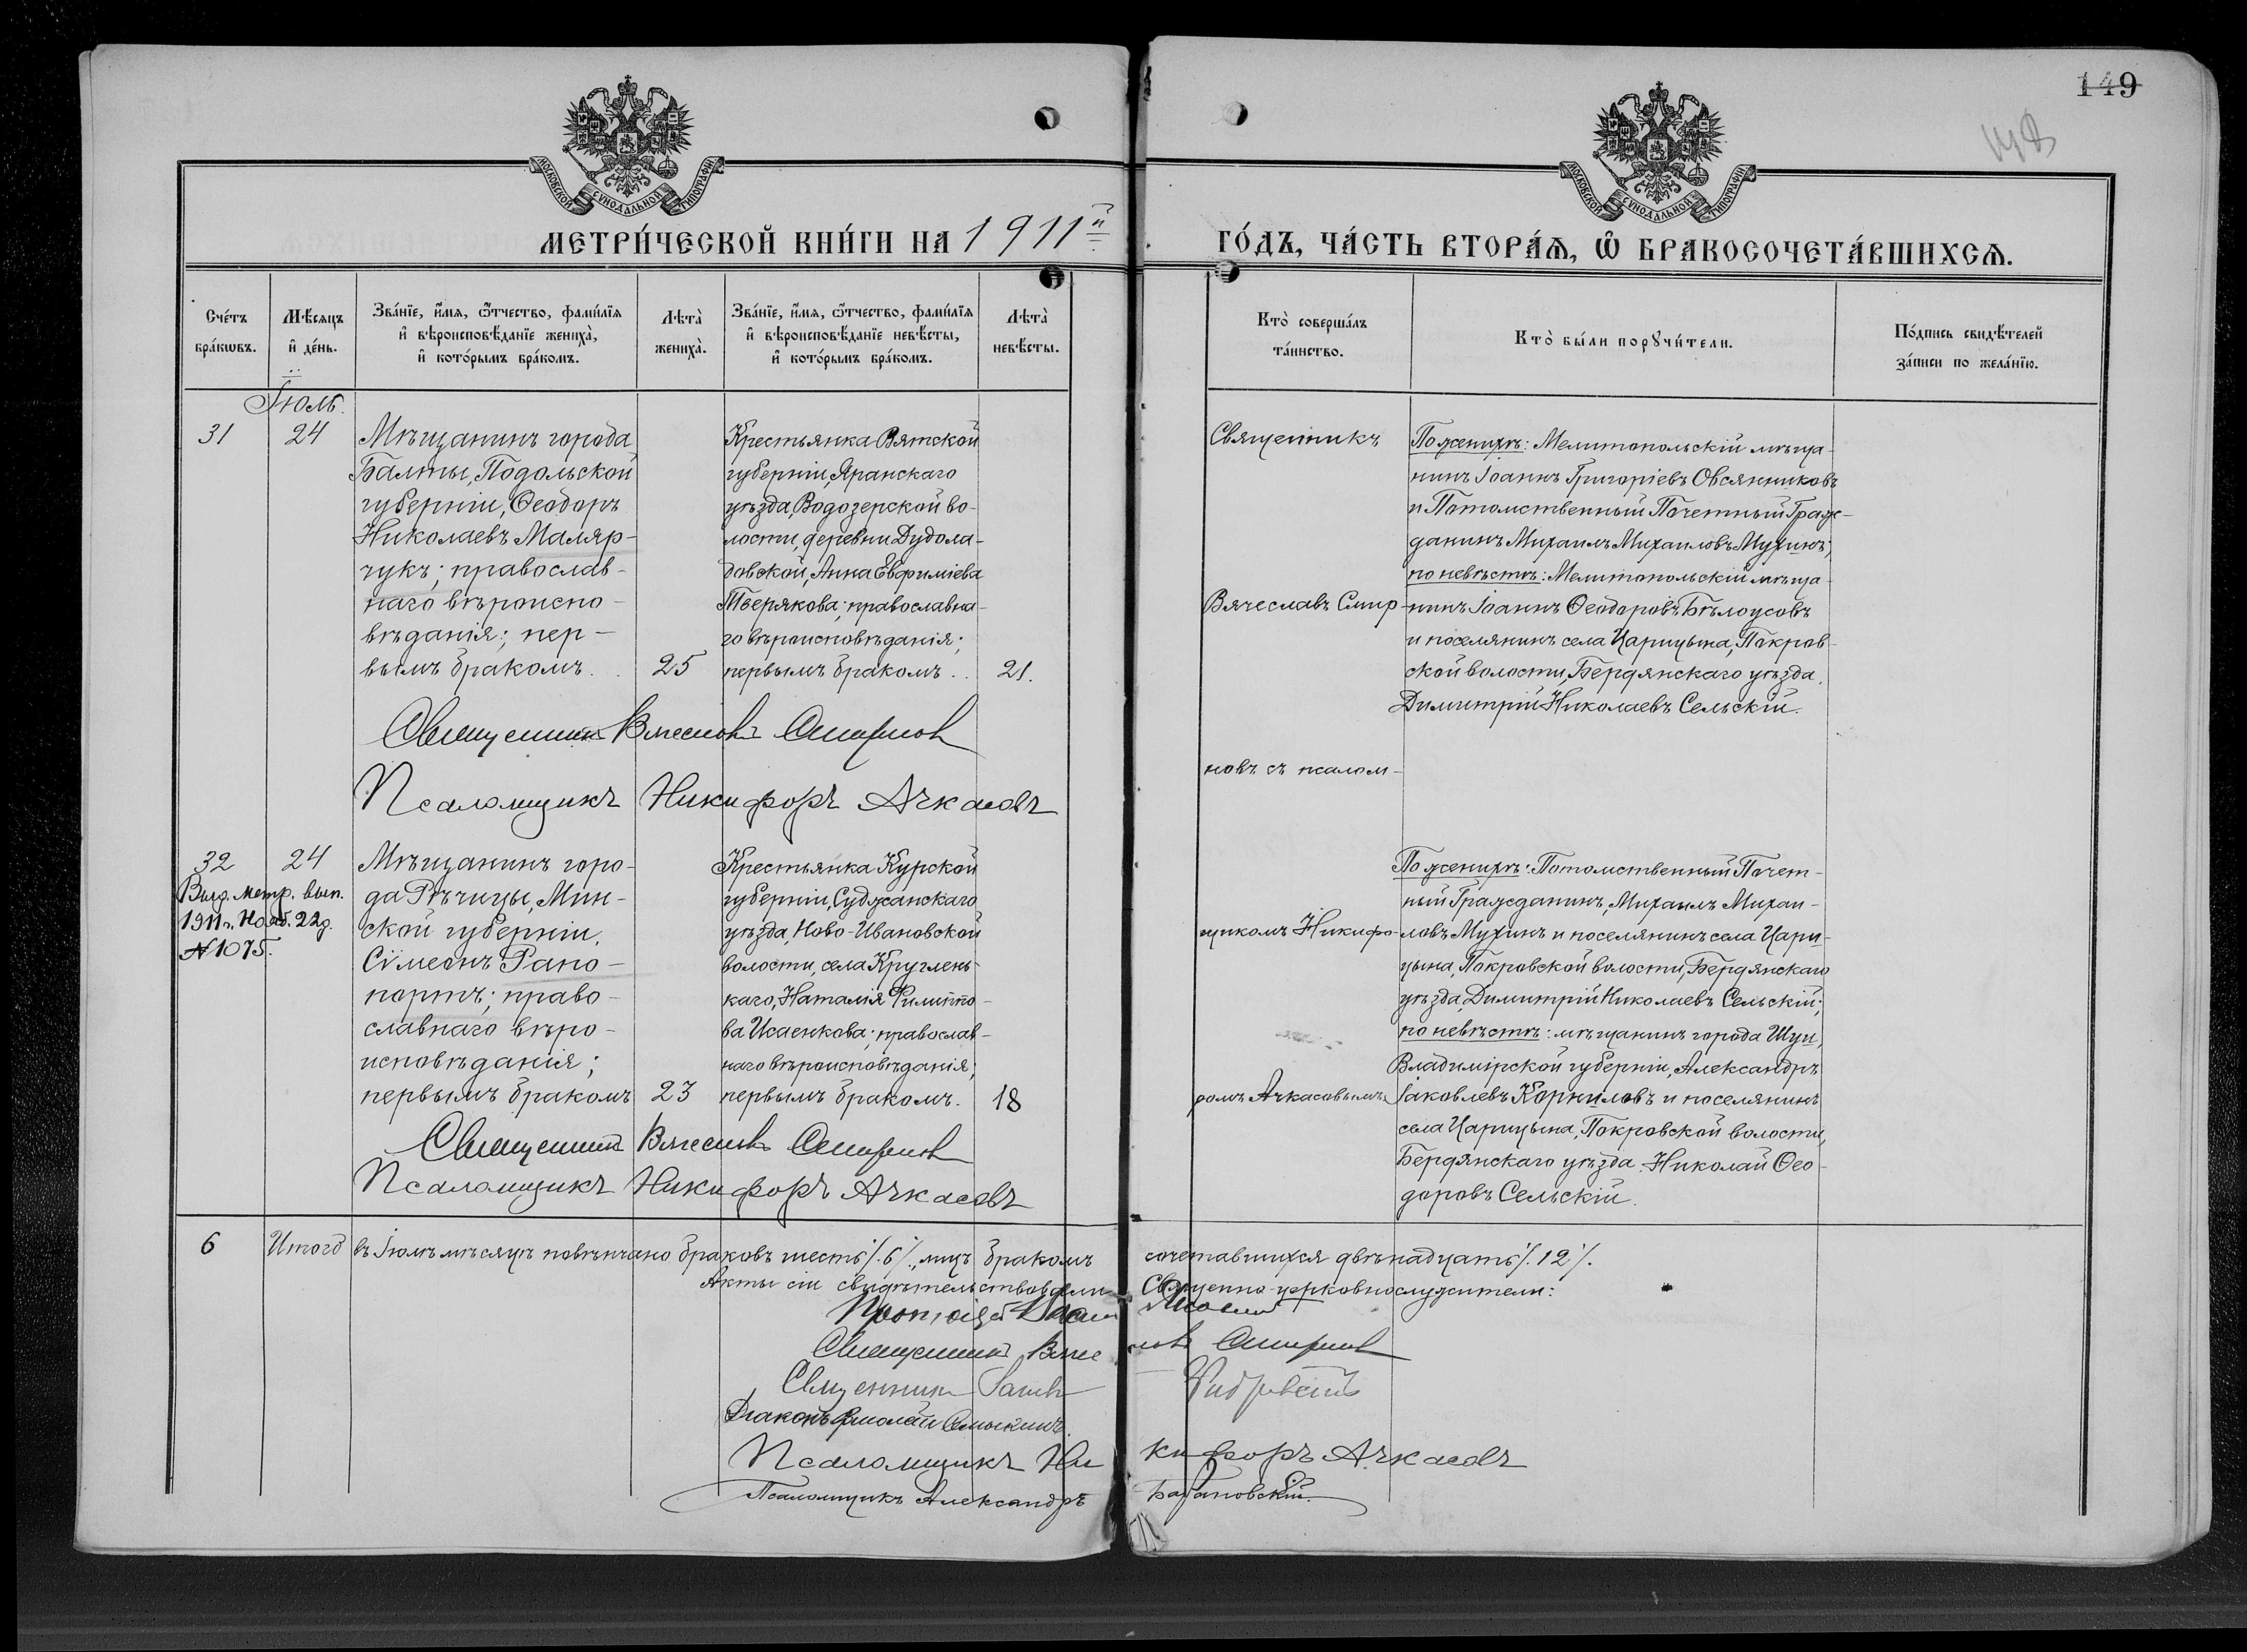 149
МОСКОВСКОЙ СУНОДАЛЬНОЙ ТИПОГРАФІИ
МОСКОВСКОЙ СУНОДАЛЬНОЙ ТИПОГРАФІИ
МЕТРИ́ЧЕСКОЙ КНИ́ГИ НА 1911й
ГО́ДЪ, ЧА́СТЬ ВТОРА́Ѧ, Ѡ҆ БРАКОСОЧЕТА́ВШИХСѦ.
Сче́тъ
бра́кѡвъ.
Мѣ́сѧцъ
и҆ де́нь.
Зва́нїе, и҆́мѧ, ѻ҆́тчество, фами́лїѧ
и҆ вѣроисповѣ́данїе жениха̀,
и҆ кото́рымъ бра́комъ.
Лѣта̀
жениха̀.
Зва́нїе, и҆́мѧ, ѻ҆́тчество, фами́лїѧ
и҆ вѣроисповѣ́данїе невѣ́сты,
и҆ кото́рымъ бра́комъ.
Лѣта̀
невѣ́сты.
Кто̀ соверша́лъ
та́инство.
Кто̀ бы́ли порꙋчи́тели.
По́дпись свидѣ́телей
за́писи по жела́нїю.
Іюль.
31
24
Мѣщанинъ города
Балты, Подольской
губерніи, Ѳеодоръ
Николаевъ Маляр-
чукъ; православ-
наго вѣроиспо-
вѣданія; пер-
вымъ бракомъ. .
25
Крестьянка Вятской
губерніи, Яранскаго
уѣзда, Водозерской во-
лости, деревни Дудола-
довской, Анна Евфиміева
Тверякова; православна-
го вѣроисповѣданія;
первымъ бракомъ. .
21.
Священникъ
Вячеславъ Смир-
новъ съ псалом-
щикомъ Никифо-
ромъ Ачкасовымъ
По женихѣ: Мелитопольскій мѣща-
нинъ Іоаннъ Григоріевъ Овсянниковъ
и Потомственный Почетный Граж-
данинъ Михаилъ Михаиловъ Мухинъ;
по невѣстѣ: Мелитопольскій мѣща-
нинъ Іоаннъ Ѳеодоровъ Бѣлоусовъ
и поселянинъ села Царицына, Покров-
ской волости, Бердянскаго уѣзда,
Димитрій Николаевъ Сельскій.
Священникъ Вячеславъ Смирнов
Псаломщикъ Никифоръ Ачкасовъ
32
24
Выд. метр. вып.
1911 г. Нояб. 22 д.
№ 1075.
Мѣщанинъ горо-
да Рѣчицы, Мин-
ской губерніи,
Сѵмеонъ Рапо-
портъ; право-
славнаго вѣро-
исповѣданія;
первымъ бракомъ
23
Крестьянка Курской
губерніи, Суджанскаго
уѣзда, Ново-Ивановской
волости, села Круглень-
каго, Наталія Филиппо-
ва Исаенкова; православ-
наго вѣроисповѣданія;
первымъ бракомъ.
18
По женихѣ: Потомственный Почет-
ный Гражданинъ, Михаилъ Михаи-
ловъ Мухинъ и поселянинъ села Цари-
цына, Покровской волости, Бердянскаго
уѣзда, Димитрій Николаевъ Сельскій;
по невѣстѣ: мѣщанинъ города Шуи,
Владимірской губерніи, Александръ
Іаковлевъ Корниловъ и поселянинъ
села Царицына, Покровской волости,
Бердянскаго уѣзда, Николай Ѳео-
доровъ Сельскій.
Священникъ Вячеславъ Смирнов
Псаломщикъ Никифоръ Ачкасовъ
6
Итого въ Іюлѣ мѣсяцѣ повѣнчано браковъ шесть /.6/., лицъ бракомъ сочетавшихся двѣнадцать /.12/.
Акты сіи свидѣтельствовали Священно-церковнослужители:
Протоіерей
Священникъ Вячеславъ Смирнов
Священникъ
Діаконъ
Псаломщикъ Никифоръ Ачкасовъ
Псаломщикъ Александръ Барановскій.